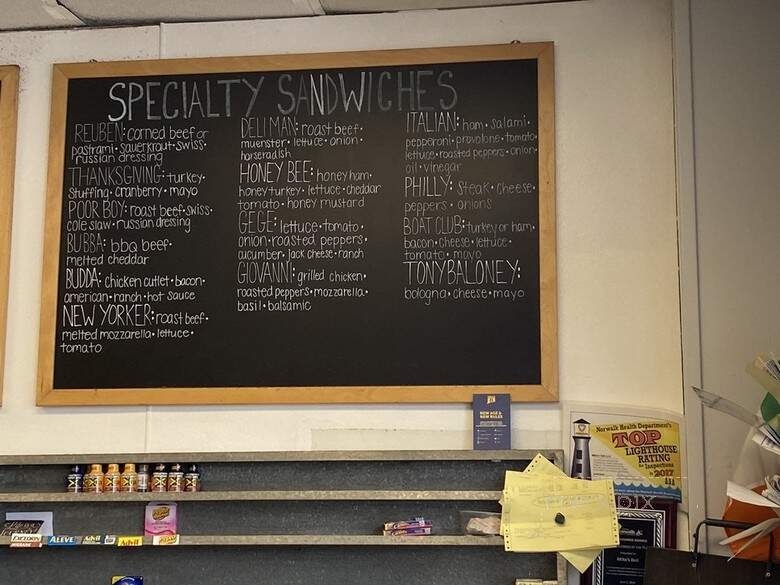 SPECIALTY SANDWICHES
REUBEN: corned beef or
pastrami • sauerkraut • swiss •
russian dressing
THANKSGVING: turkey •
Stuffing • cranberry • mayo
POOR BOY: roast beef • swiss •
cole slaw • russian dressing
BUBBA: bbq beef •
melted cheddar
BUDDA: chicken cutlet • bacon •
american • ranch • hot sauce
NEW YORKER: roast beef •
melted mozzarella • lettuce •
tomato
DELI MAN: roast beef •
muenster • lettuce • onion •
horseradish
HONEY BEE: honey ham •
honey turkey • lettuce • cheddar
tomato • honey mustard
GEGE: lettuce • tomato •
onion • roasted peppers •
cucumber • jack cheese • ranch
GIOVANNI: grilled chicken •
roasted peppers • mozzarella •
basil • balsamic
ITALIAN: ham • salami •
pepperoni • provolone • tomato •
lettuce • roasted peppers • onion •
oil • vinegar
PHILLY: steak • cheese •
peppers • onions
BOAT CLUB: turkey or ham •
bacon • cheese • lettuce •
tomato • mayo
TONYBALONEY:
bologna • cheese • mayo
NEW AGE &
NEW RULES
Norwalk Health Department's
TOP
LIGHTHOUSE
RATING
for Inspections
in 2017
Excedrin
ALEVE
Advil
Advil